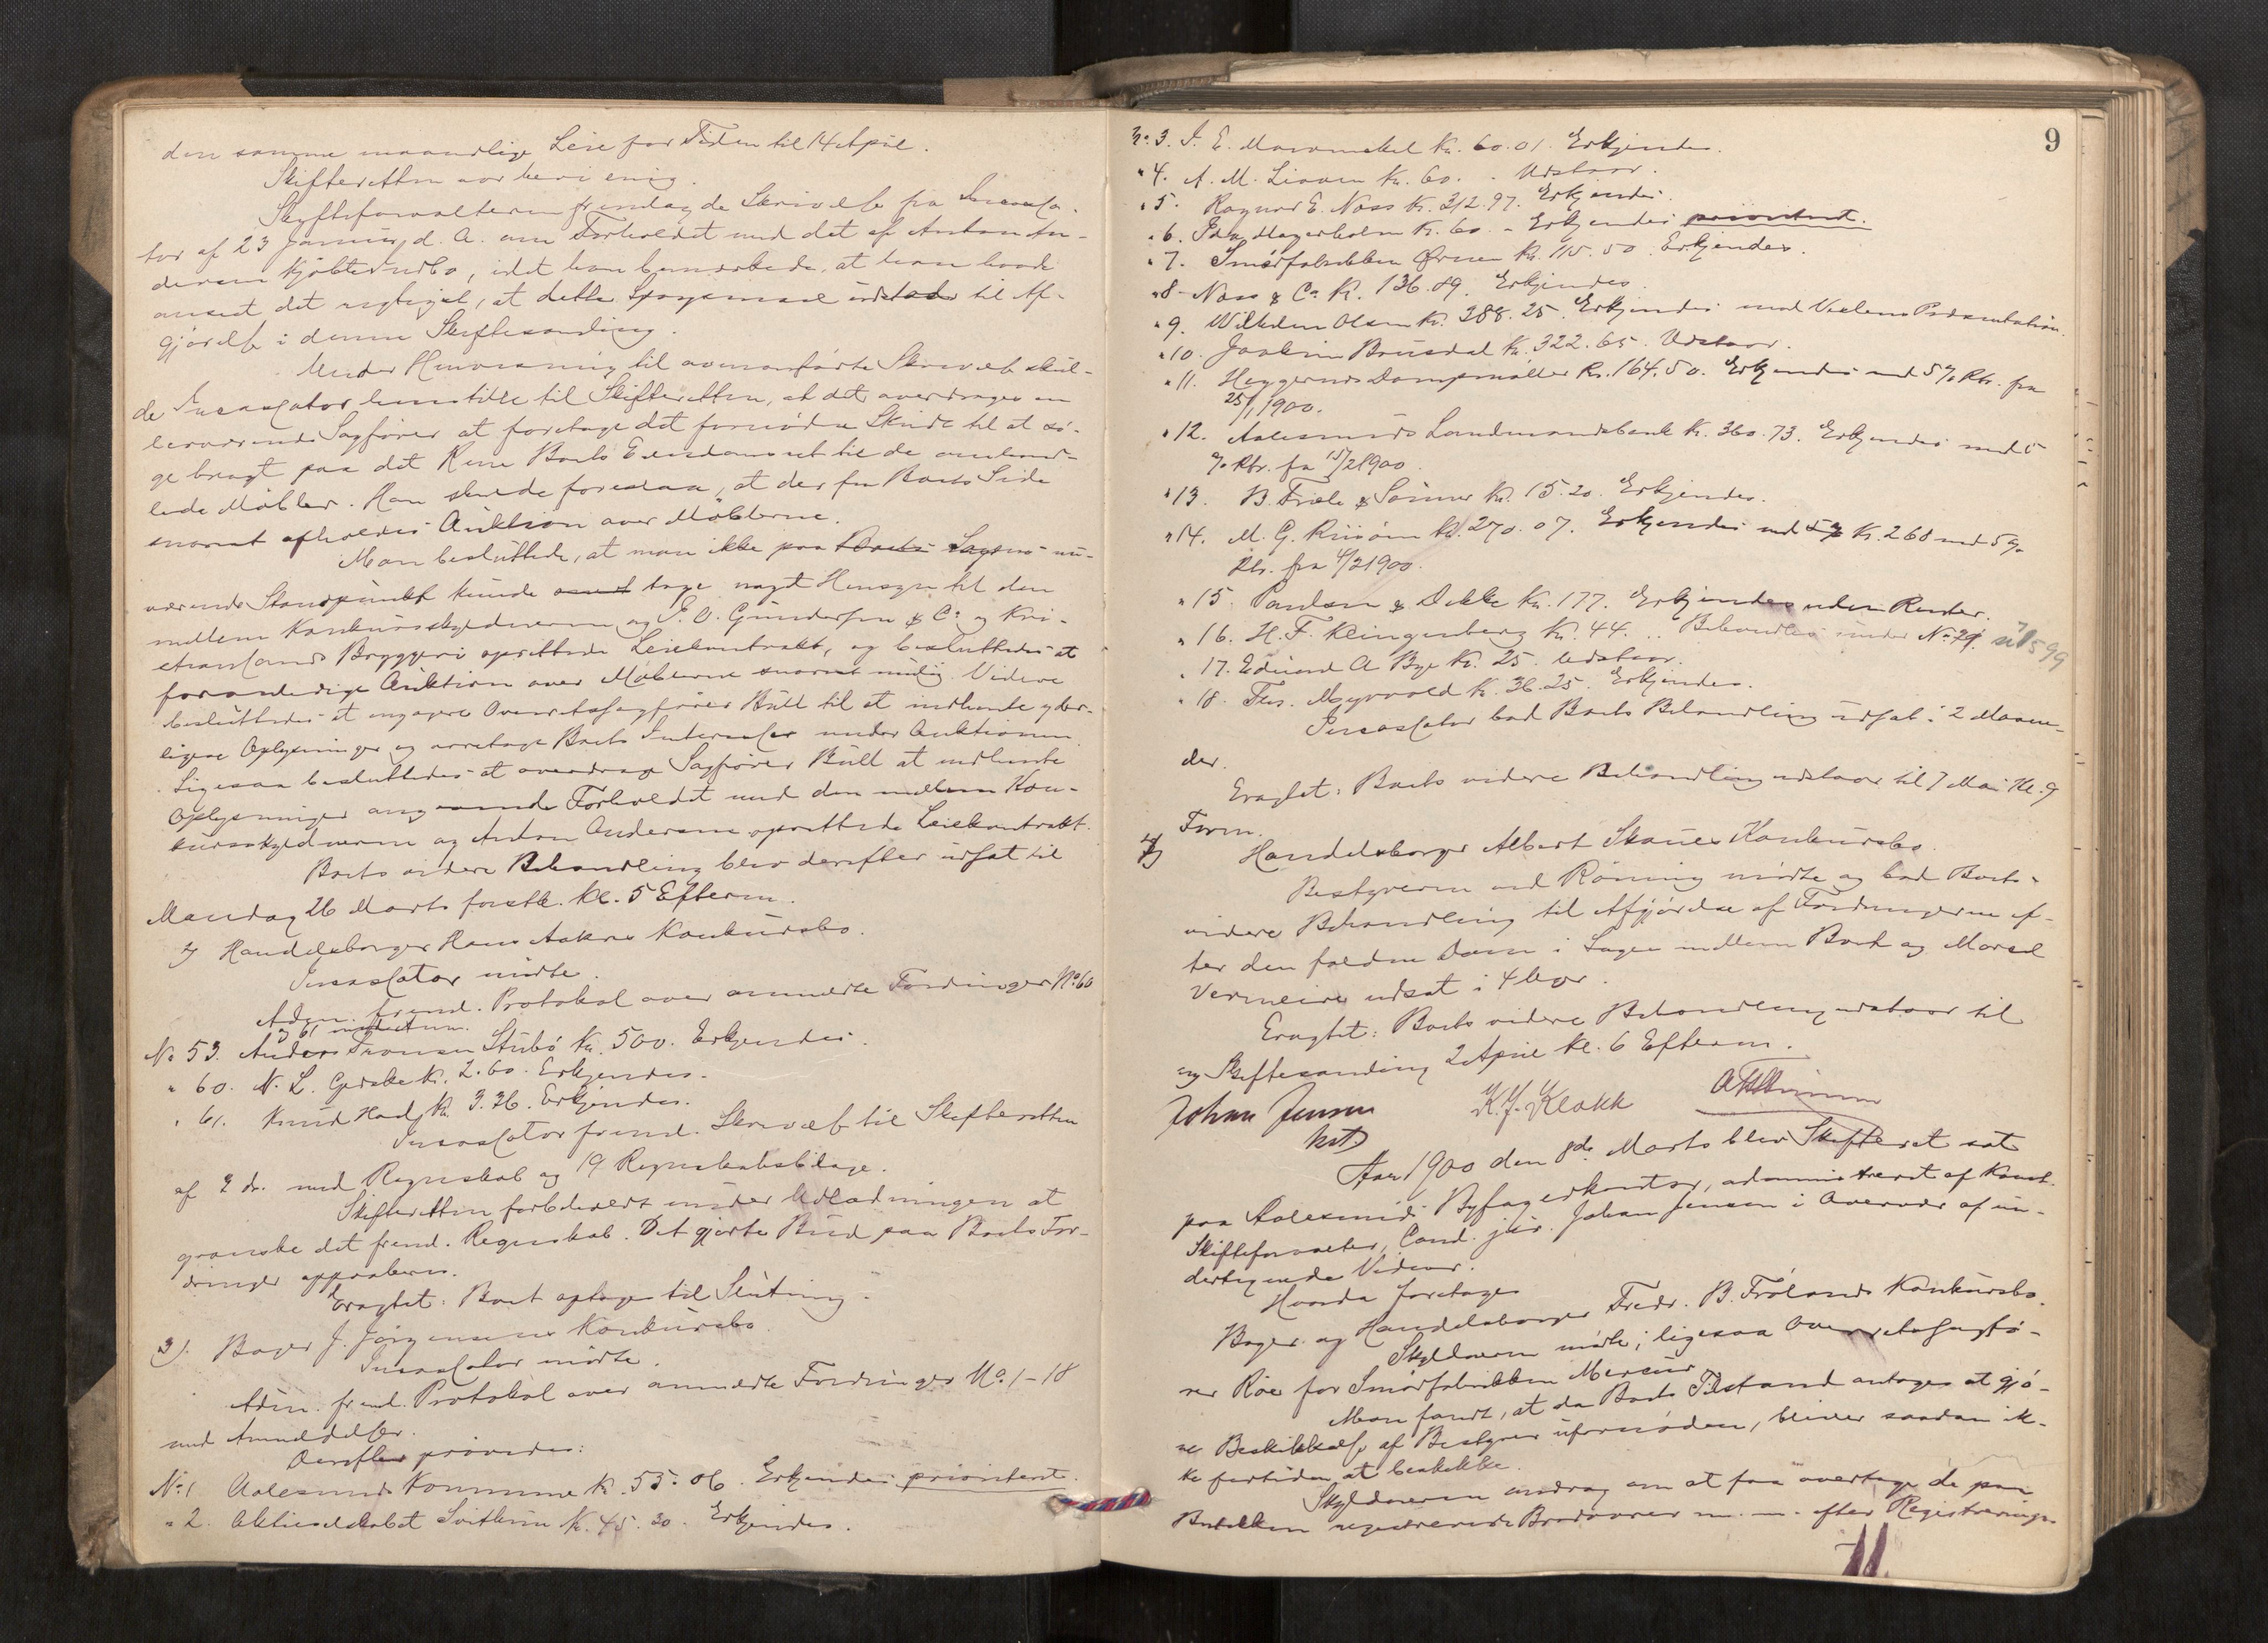 den samme maanedlige Leie for Tiden til 14 April.
Skifteretten var heri enig.
Skifteforvalteren fremlagde Skrivelse fra Incassa-
tor af 23 Januar d. A. om Forholdet med det af Anton An-
dersen kjøbte Indbo, idet han bemærkede, at han havde
anseet det rigtigst, at dette Spørgsmaal udstaar til Af-
gjørelse i denne Skiftesamling.
Under Henvisning til ovenanførte Skrivelse skul-
de Incassator henstille til Skifteretten, at det overdrages en
herværende Sagfører at foretage det fornødne Skridt til at sø-
ge bragt paa det Rene Boets Eiendomsret til de omhand-
lede Møbler. Han skulde foreslaa, at der fra Boets Side
snarest afholdes Auktion over Møblerne.
Man besluttede, at man ikke paa Sagens nu-
værende Standpunkt kunde tage noget Hensyn til den
mellem Konkursskyldneren og E. O. Gundersen & Co og Kri-
stiansands Bryggeri oprettede Leiekontrakt, og besluttedes at
foranledige Auktion over Møblerne snarest mulig. Videre
besluttedes at engagere Overretssagfører Bull til at indhente yder-
ligere Oplysninger og varetage Boets Interesser under Auktionen.
Ligesaa besluttedes at overdrage Sagfører Bull at indhente
Oplysninger angaaende Forholdet med den mellem Kon-
kursskyldneren og Anton Andersen oprettede Leiekontrakt.
Boets videre Behandling blev derefter udsat til
Mandag 26 Marts førstk. kl. 5 Efterm.
2) Handelsborger Hans Aakres Konkursbo.
Incassator mødte.
Adm. freml. Protokol over anmeldte Fordringer No 60
og 61 inclus.
No 53. Anders Fransen Stubø Kr. 500. Erkjendes.
" 60. N. L. Giske Kr. 2.60. Erkjendes.
" 61. Knud Had Kr. 3.36. Erkjendes.
Incassator freml. Skrivelse til Skifteretten
af 2 ds. med Regnskab og 19 Regnskabsbilage.
Skifteretten forbeholdt under Udlodningen at
granske det freml. Regnskab. Det gjorte Bud paa Boets For-
dringer approberes.
Eragtet: Boet optages til Slutning.
3). Bager J. Jørgensens Konkursbo.
Incassator mødte.
Adm. freml. Protokol over anmeldte Fordringer No. 1-18
med Anmeldelser.
Derefter prøvedes:
No 1 Aalesunds Kommune Kr. 55.06. Erkjendes prioriteret.
" 2. Aktieselskabet Svithun Kr. 45.30. Erkjendes.
9
No. 3. J. E. Kr. 60.01. Erkjendes.
" 4. A. M. Liaaen Kr. 60. Udstaar.
" 5. Ragnvd E. Næss Kr. 312.97. Erkjendes.
" 6. Ida Magerholm Kr. 60. - Erkjendes prioriteret.
" 7. Smørfabrikken Ørnen Kr. 115.50. Erkjendes.
" 8 - Næss & Co Kr. 136.89. Erkjendes.
" 9. Wilhelm Olsen Kr. 388.25. Erkjendes mod Vexlens Præsentation.
" 10. Joakim Brusdal Kr. 322.65. Udstaar.
" 11. Heggernes Dampmøller Kr. 164.50. Erkjendes med 5% Rtr. fra
25/1 1900.
" 12. Aalesunds Landmandsbank Kr. 360.73. Erkjendes med 5
% Rtr. fra 15/2 1900.
" 13. B. Friele & Sønner Kr. 15.20. Erkjendes.
" 14. M. G. Riisøen Kr. 270.07. Erkjendes med Kr. 268 med 5%
Rtr. fra 4/2 1900.
" 15. Paulsen & Dekke Kr. 177. Erkjendes uden Renter.
" 16. H. F. Klingenberg Kr. 44. Behandles under No 29.
" 17. Eduard A Bye Kr. 25. Udstaar.
" 18. Myrvold Kr. 36.25. Erkjendes.
Incassator bad Boets Behandling udsat i 2 Maane-
der.
Eragtet: Boets videre Behandling udstaar til 7 Mai Kl. 9
Form.
4) Handelsborger Albert Skaues Konkursbo.
Bestyreren ved Rønning mødte og bad Boets
videre Behandling til Afgjørelse af Fordringerne ef-
ter den faldne Dom i Sagen mellem Boet og Marcel
Vermeire udsat i 4 Uger.
Eragtet: Boets videre Behandling udstaar til
ny Skiftesamling 2 April Kl. 6 Efterm.
Johan Jensen K. J. Klokk
kst.
Aar 1900 den 8de Marts blev Skifteret sat
paa Aalesunds Byfogedkontor, administreret af Konst.
Skifteforvalter, Cand. jur. Johan Jensen i Overvær af un-
dertegnede Vidner.
Hvorda foretoges
Bager og Handelsborger Fredr. B. Frölands Konkursbo.
Skyldneren mødte; ligesaa Overretssagfø-
rer Röe for Smørfabrikken Mercur.
Man fandt, at da Boets Tilstand antages at gjø-
re Beskikkelse af Bestyrer ufornøden, bliver saadan ik-
ke fortiden at beskikke.
Skyldneren androg om at faa overtage de paa
Butikken registrerede Brødvarer m. m. efter Registrerings-